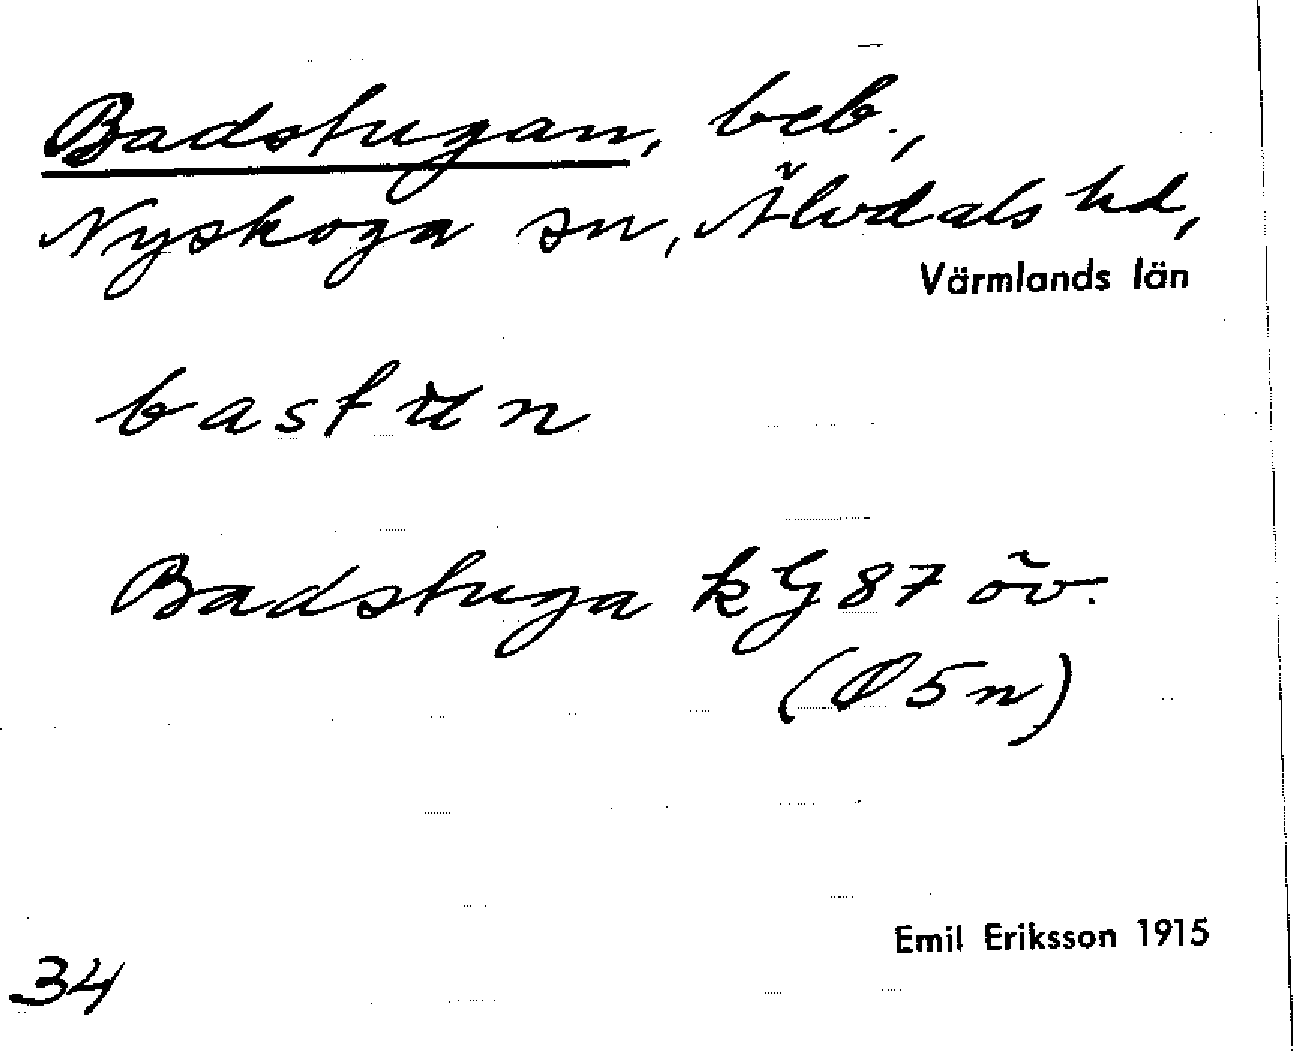 Badstugan, beb.,
Nyskoga sn, Älvdals hd,
Värmlands län
bastun
Badstuga kG87 öv.
(Ø5n)
Emil Eriksson 1915
34